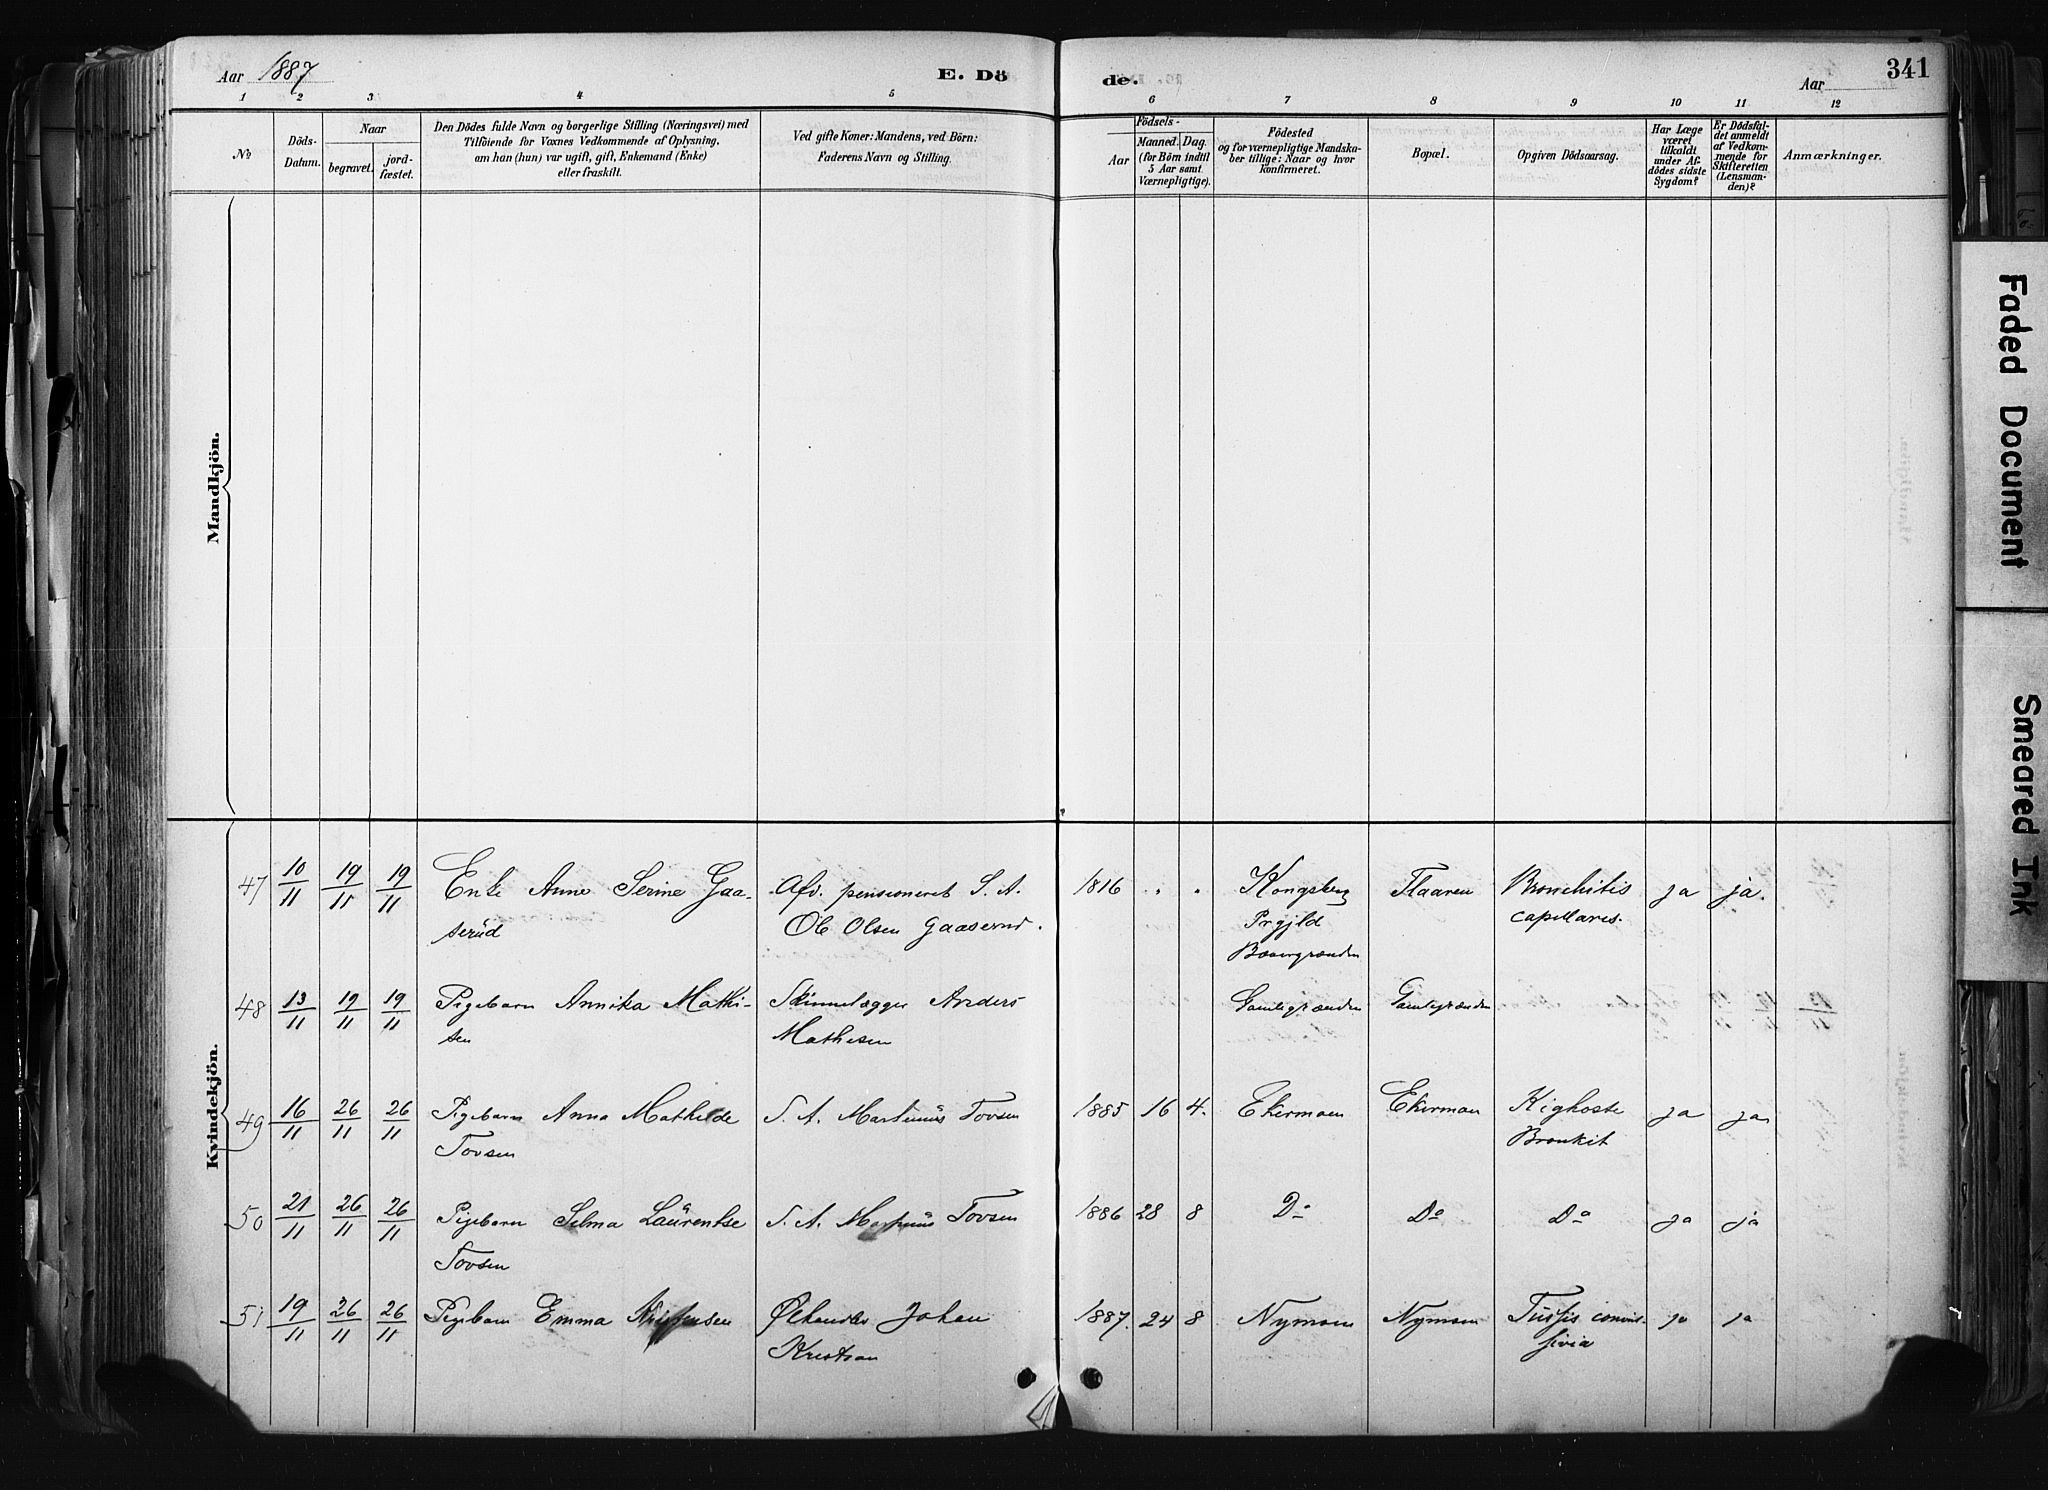 Aar 1887
E. Dö
de.
Aar
341
1 2 3 4 5 6 7 8 9 10 11 12
№
Döds-
Datum.
Naar
begravet.
jord-
fæstet.
Den Dödes fulde Navn og borgerlige Stilling (Næringsvei) med
Tilföiende for Voxnes Vedkommende af Oplysning,
om han (hun) var ugift, gift, Enkemand (Enke)
eller fraskilt.
Ved gifte Koner: Mandens, ved Börn:
Faderens Navn og Stilling.
Födsels-
Aar
Maaned.
Dag.
(for Börn indtil
5 Aar samt
Værnepligtige).
Födested
og for værnepligtige Mandska-
ber tillige: Naar og hvor
konfirmeret.
Bopæl.
Opgiven Dödsaarsag.
Har Læge
været
tilkaldt
under Af-
dödes sidste
Sygdom?
Er Dödsfal-
det anmeldt
af Vedkom-
mende for
Skifteretten
(Lensman-
den)?
Anmærkninger.
Mandkjön.
Kvindekjön.
47 10/11 19/11 19/11 Enke Anne Serine Gaa- Afd. pensioneret S. A. 1816 " " Kongsberg Flaaren Bronchitis ja ja.
serud Ole Olsen Gaaserud. Prgjld capillaris.
Bævergrænden
48 13/11 19/11 19/11 Pigebarn Annika Mathi- Skinnelægger Anders Gamlegrænden Gamlegrænden
sen Mathisen
49 16/11 26/11 26/11 Pigebarn Anna Mathilde S. A. Martinus Tovsen 1885 16 4. Ekermoen Ekermoen Kighoste ja ja
Tovsen Bronkit
50 21/11 26/11 26/11 Pigebarn Selma Laurentse S. A. Martinus Tovsen 1886 28 8 Do Do Do ja ja
Tovsen
51 19/11 26/11 26/11 Pigebarn Emma Kristensen Ølhandler Johan 1887. 24 8 Nymoen Nymoen Tussis convul- ja ja
Kristian sivia
Faded Document
Smeared Ink